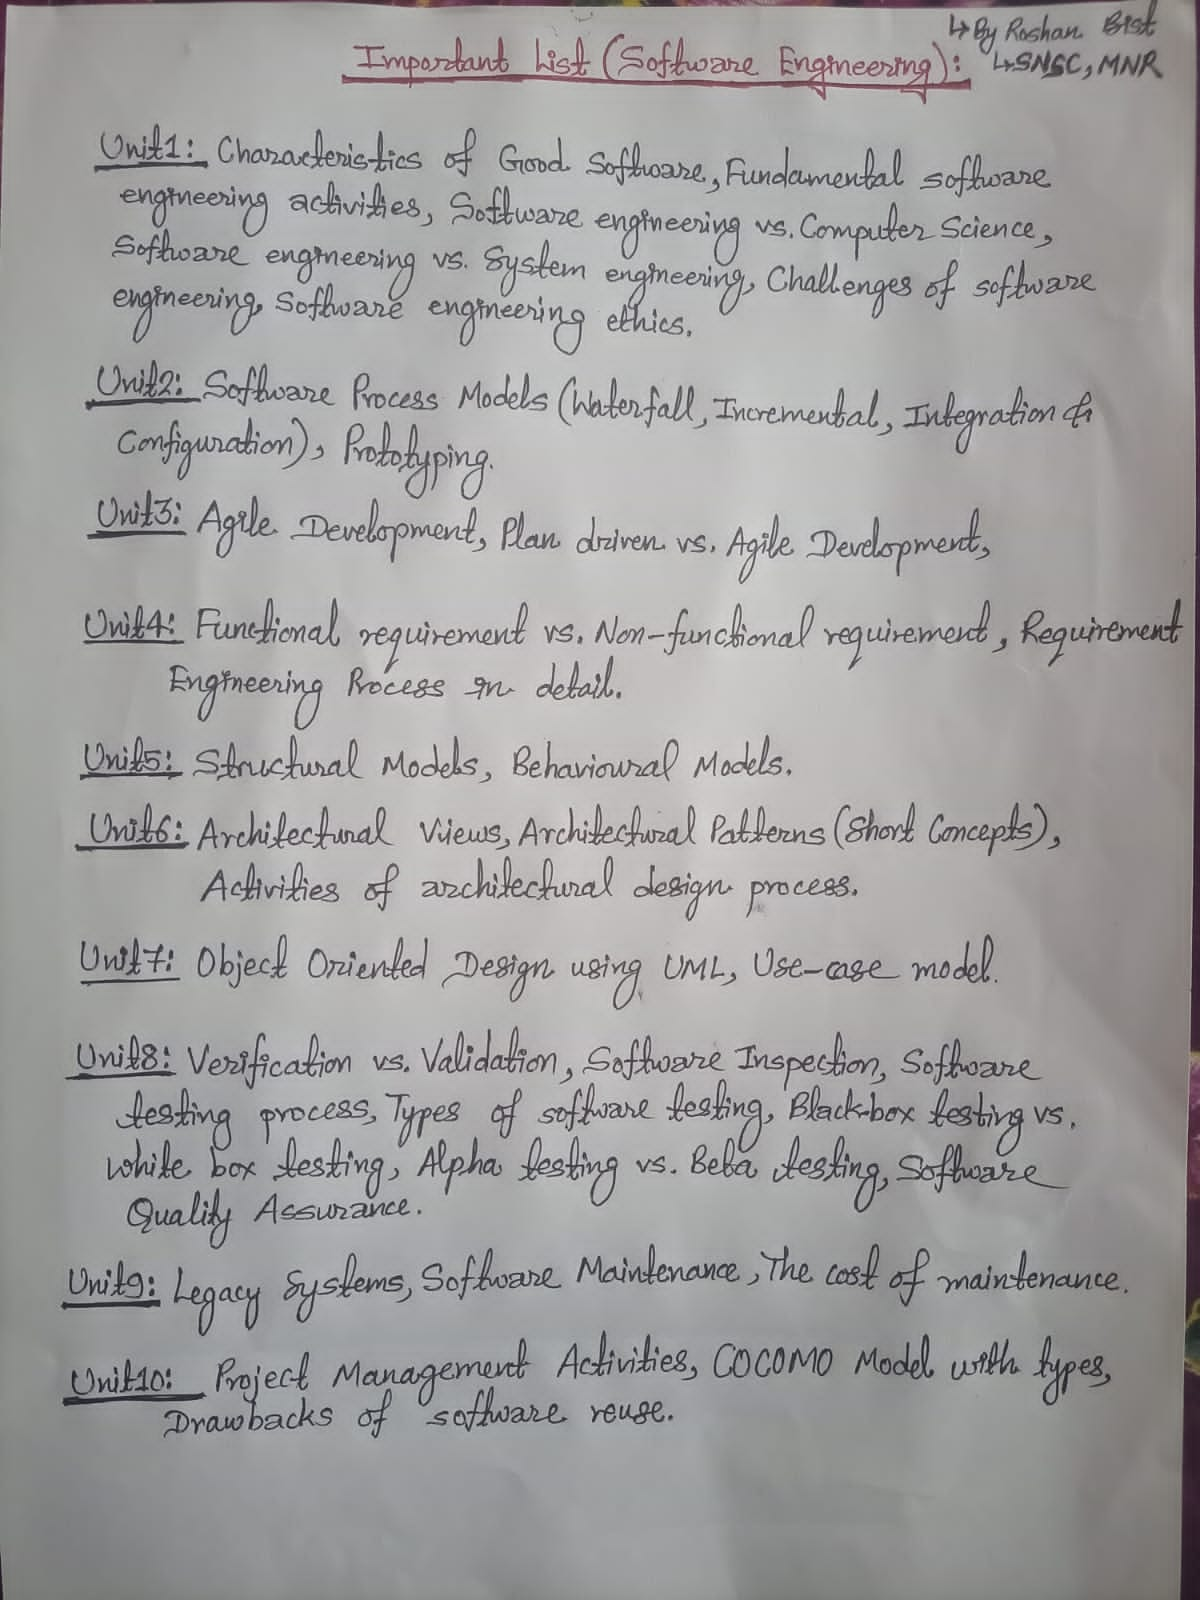 ↳ By Roshan Bist
↳ SNSC, MNR
Important List (Software Engineering):
Unit1: Characteristics of Good Software, Fundamental software
engineering activities, Software engineering vs. Computer Science,
Software engineering vs. System engineering, Challenges of software
engineering, Software engineering ethics.
Unit2: Software Process Models (Waterfall, Incremental, Integration &
Configuration), Prototyping.
Unit3: Agile Development, Plan driven vs. Agile Development,
Unit4: Functional requirement vs. Non-functional requirement, Requirement
Engineering Process in detail.
Unit5: Structural Models, Behavioural Models.
Unit6: Architectural Views, Architectural Patterns (Short Concepts),
Activities of architectural design process.
Unit7: Object Oriented Design using UML, Use-case model.
Unit8: Verification vs. Validation, Software Inspection, Software
testing process, Types of software testing, Black-box testing vs.
white box testing, Alpha testing vs. Beta testing, Software
Quality Assurance.
Unit9: Legacy Systems, Software Maintenance, The cost of maintenance.
Unit10: Project Management Activities, COCOMO Model with types,
Drawbacks of software reuse.